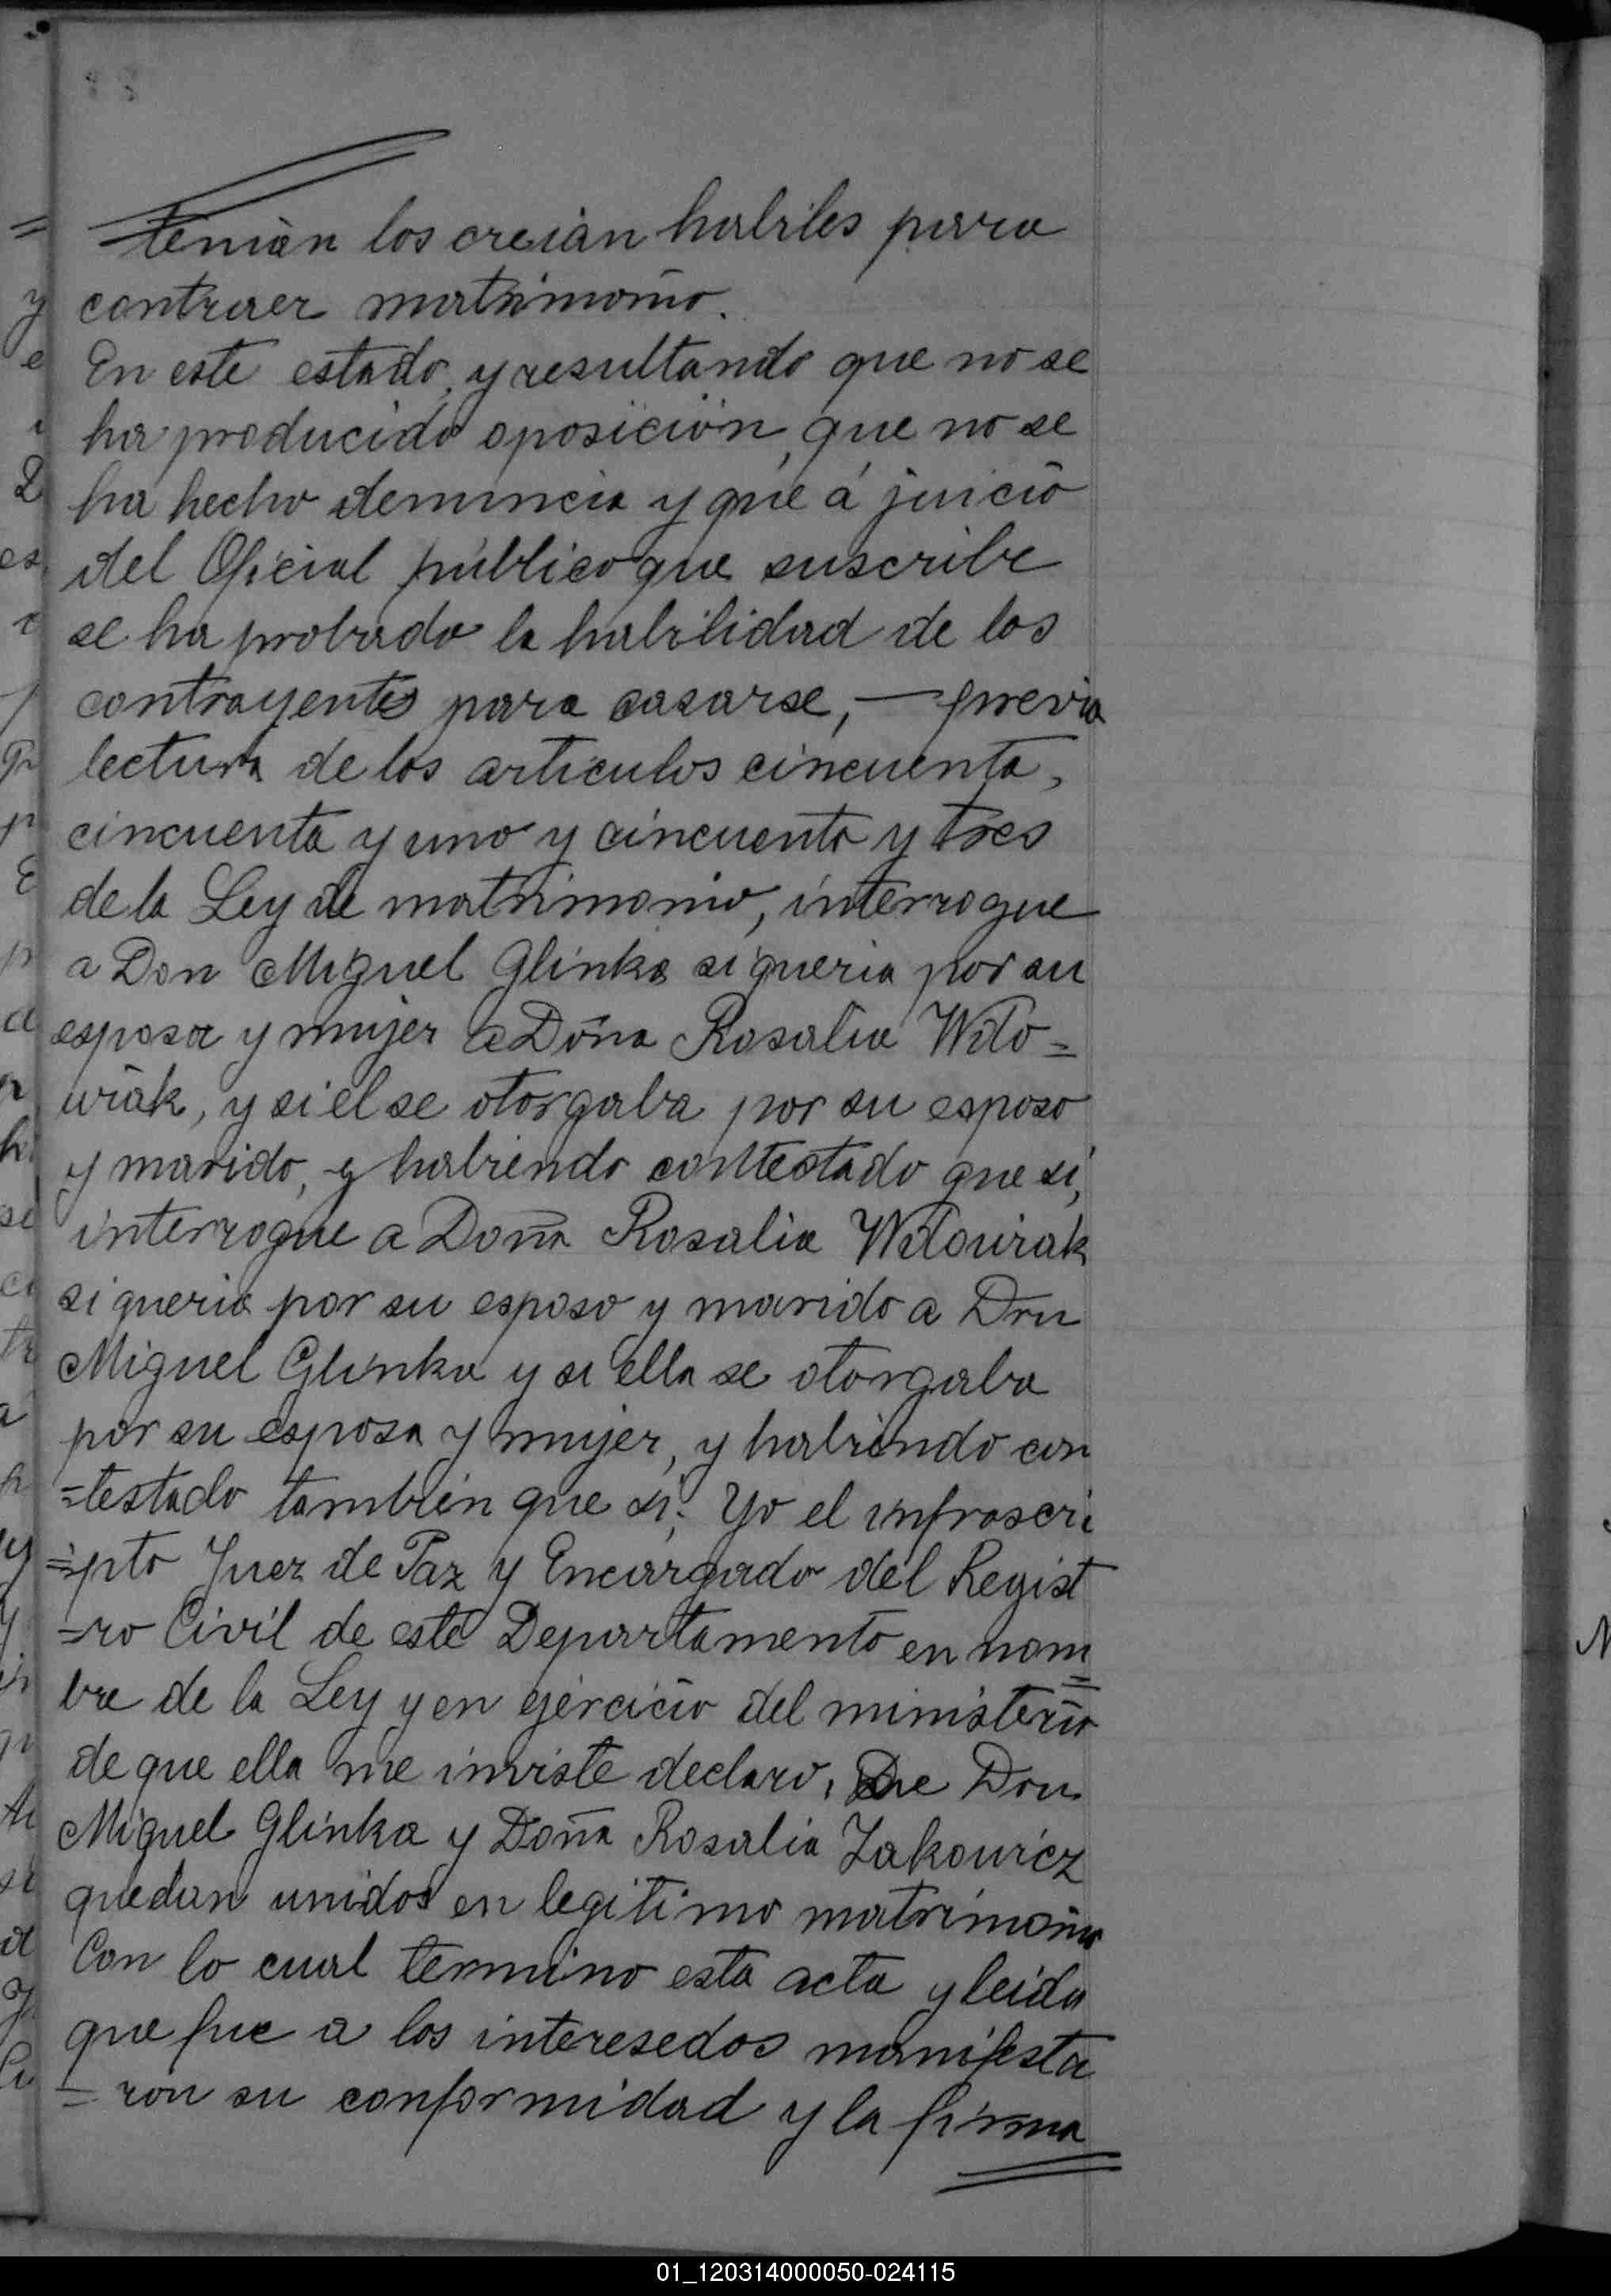 tenian los creian habiles para
contraer matrimonio.
En este estado, y resultando que no se
ha producido oposición, que no se
ha hecho denuncia y que á juicio
del Oficial público que suscribe
se ha probado la habilidad de los
contrayentes para casarse, — previa
lectura de los articulos cincuenta,
cincuenta y uno y cincuenta y tres
de la Ley de matrimonio, interrogue
a Don Miguel Glinka si queria por su
esposa y mujer a Doña Rosalia Wito=
wiak, y si el se otorgaba por su esposo
y marido, y habiendo contestado que si,
interrogue a Doña Rosalia Witowiak
si queria por su esposo y marido a Don
Miguel Glinka y si ella se otorgaba
por su esposa y mujer, y habiendo con
=testado tambien que si; Yo el infrascri
=pto Juez de Paz y Encargado del Regist
=ro Civil de este Departamento en nom=
bre de la Ley y en ejercicio del ministerio
de que ella me inviste declaro, Que Don
Miguel Glinka y Doña Rosalia Zakowicz
quedan unidos en legitimo matrimonio
Con lo cual termino esta acta y leida
que fue a los interesedos manifesta
=ron su conformidad y la firma
01_120314000050-024115